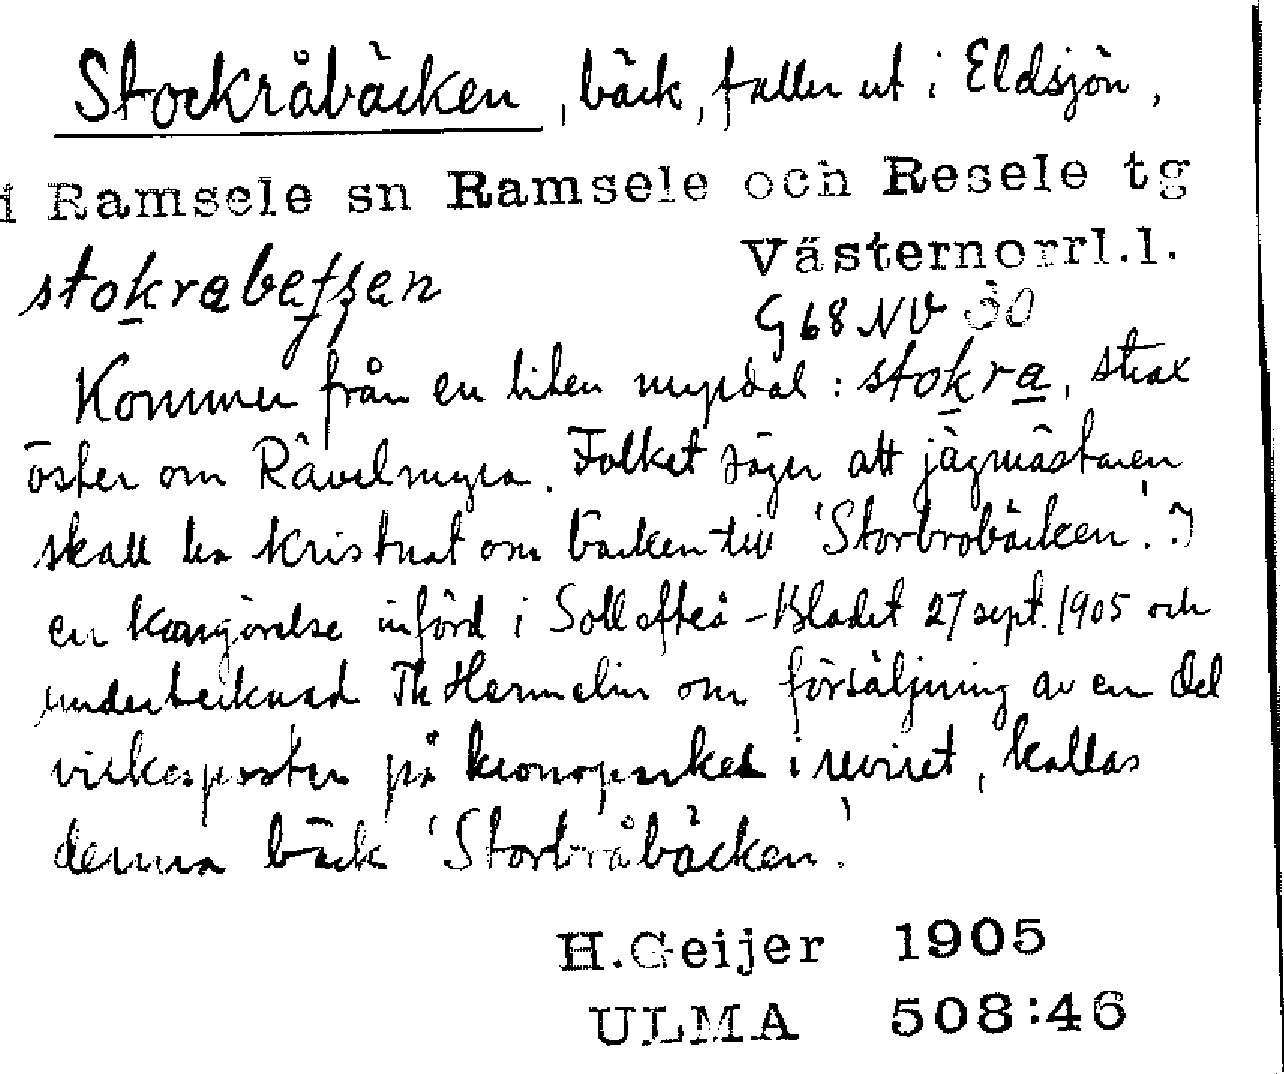 Stockråbäcken, bäck, faller ut i Eldsjön,
i Ramsele sn Ramsele och Resele tg
Västernorrl.l.
G 68 NV 30
Kommer från en liten myrdal: stokra, strax
öster om Rävelmyra. Folket säger att jägmästaren
skall ha kristnat om bäcken till 'Storbrobäcken'. I
en kungörelse införd i Sollefteå-Bladet 27 sept. 1905 och
undertecknad Th Hermelin om försäljning av en del
virkesposter på kronoparker i reviret, kallas
denna bäck 'Storbråbäcken.'
H.Geijer 1905
ULMA 508:46